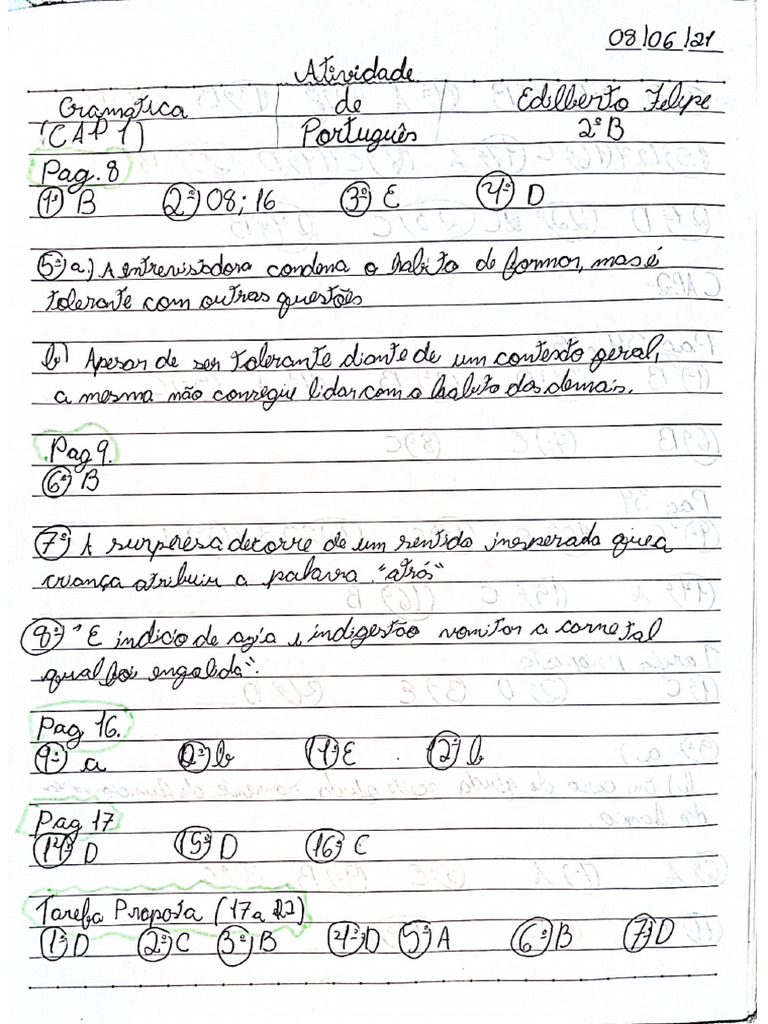 08/06/21
Atividade
Gramática de Edilberto Felipe
(CAP 1) Português 2º B
Pag. 8
1º) B 2º) 08; 16 3º) E 4º) D
5º) a) A entrevistadora condena o habito de formor, mas é
tolerante com outras questões
b) Apesar de ser tolerante diante de um contexto geral,
a mesma não consegue lidar com o habito dos demais.
Pag 9.
6º) B
7º) A surpresa decorre de um sentido inesperado que a
criança atribuir a palavra "atrós"
8º) "E indicio de azia e indigestão vomitor a carne tal
qual foi engolida".
Pag 16.
9º) a b 11º) E 12º) b
Pag 17
14º) D 15º) D 16º) C
Tarefa Proposta (17 a 22)
1º) D 2º) C 3º) B 4º) D 5º) A 6º) B 7º) D